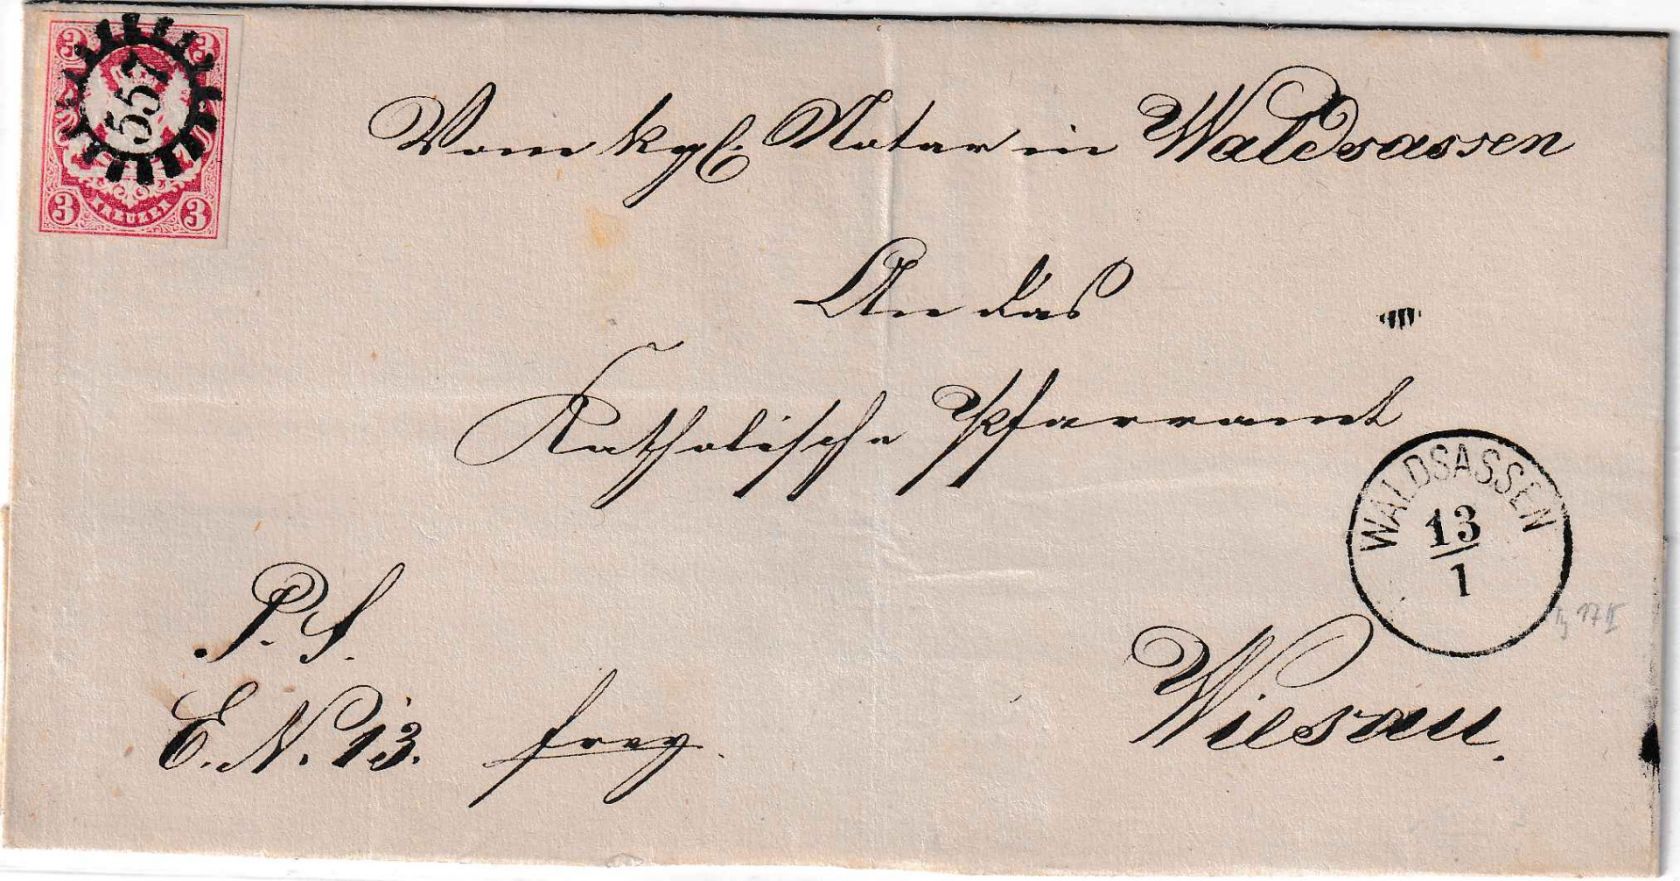 3 3
557
3 KREUZER 3
Vom kgl. Notar in Waldsassen
An das
Katholische Pfarramt
WALDSASSEN
13
1
P. S.
E. N. 13. frey.
Wiesau.